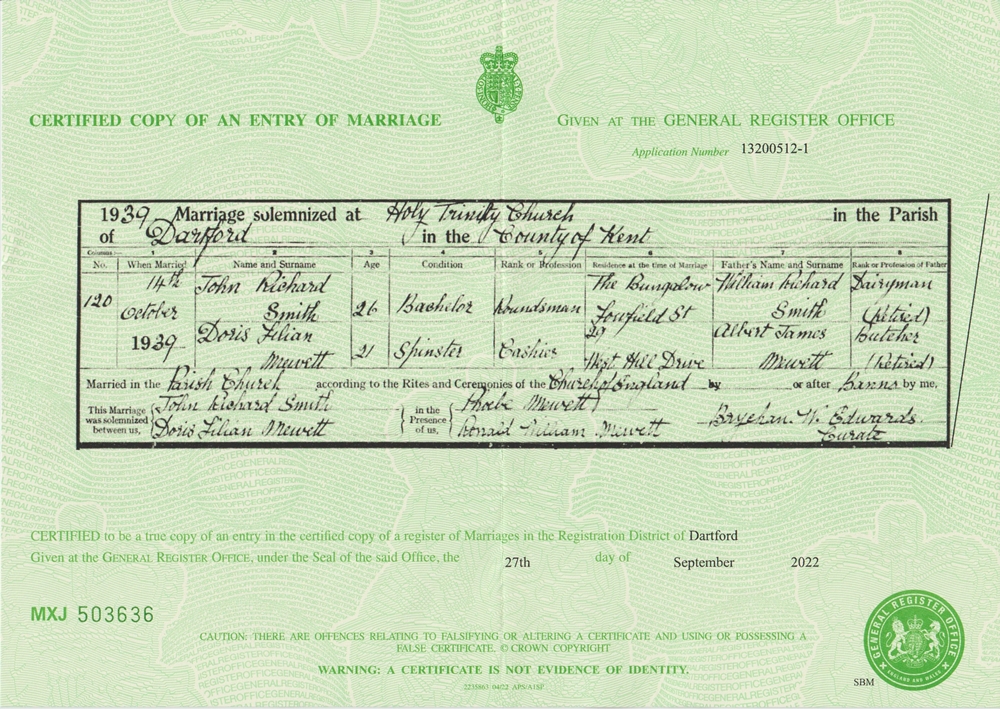 CERTIFIED COPY OF AN ENTRY OF MARRIAGE
GIVEN AT THE GENERAL REGISTER OFFICE
Application Number 13200512-1
1939 Marriage solemnized at Holy Trinity Church in the Parish
of Dartford in the County of Kent
Columns:— 1 2 3 4 5 6 7 8
No. When Married Name and Surname Age Condition Rank or Profession Residence at the time of Marriage Father's Name and Surname Rank or Profession of Father
14th John Richard The Bungalow William Richard Dairyman
120 October Smith 26 Bachelor Roundsman St Smith (retired)
1939 Doris Lilian 21 Spinster Cashier Albert James Butcher
Mewett West Hill Drive Mewett (Retired)
Married in the Parish Church according to the Rites and Ceremonies of the Church of England by or after Banns by me,
This Marriage was solemnized between us, John Richard Smith
Doris Lilian Mewett
in the Presence of us, Phoebe Mewett
Ronald William Mewett
W. Edwards
Curate
CERTIFIED to be a true copy of an entry in the certified copy of a register of Marriages in the Registration District of Dartford
Given at the GENERAL REGISTER OFFICE, under the Seal of the said Office, the 27th day of September 2022
MXJ 503636
CAUTION: THERE ARE OFFENCES RELATING TO FALSIFYING OR ALTERING A CERTIFICATE AND USING OR POSSESSING A
FALSE CERTIFICATE. © CROWN COPYRIGHT
WARNING: A CERTIFICATE IS NOT EVIDENCE OF IDENTITY.
GENERAL REGISTER OFFICE
ENGLAND AND WALES
SBM